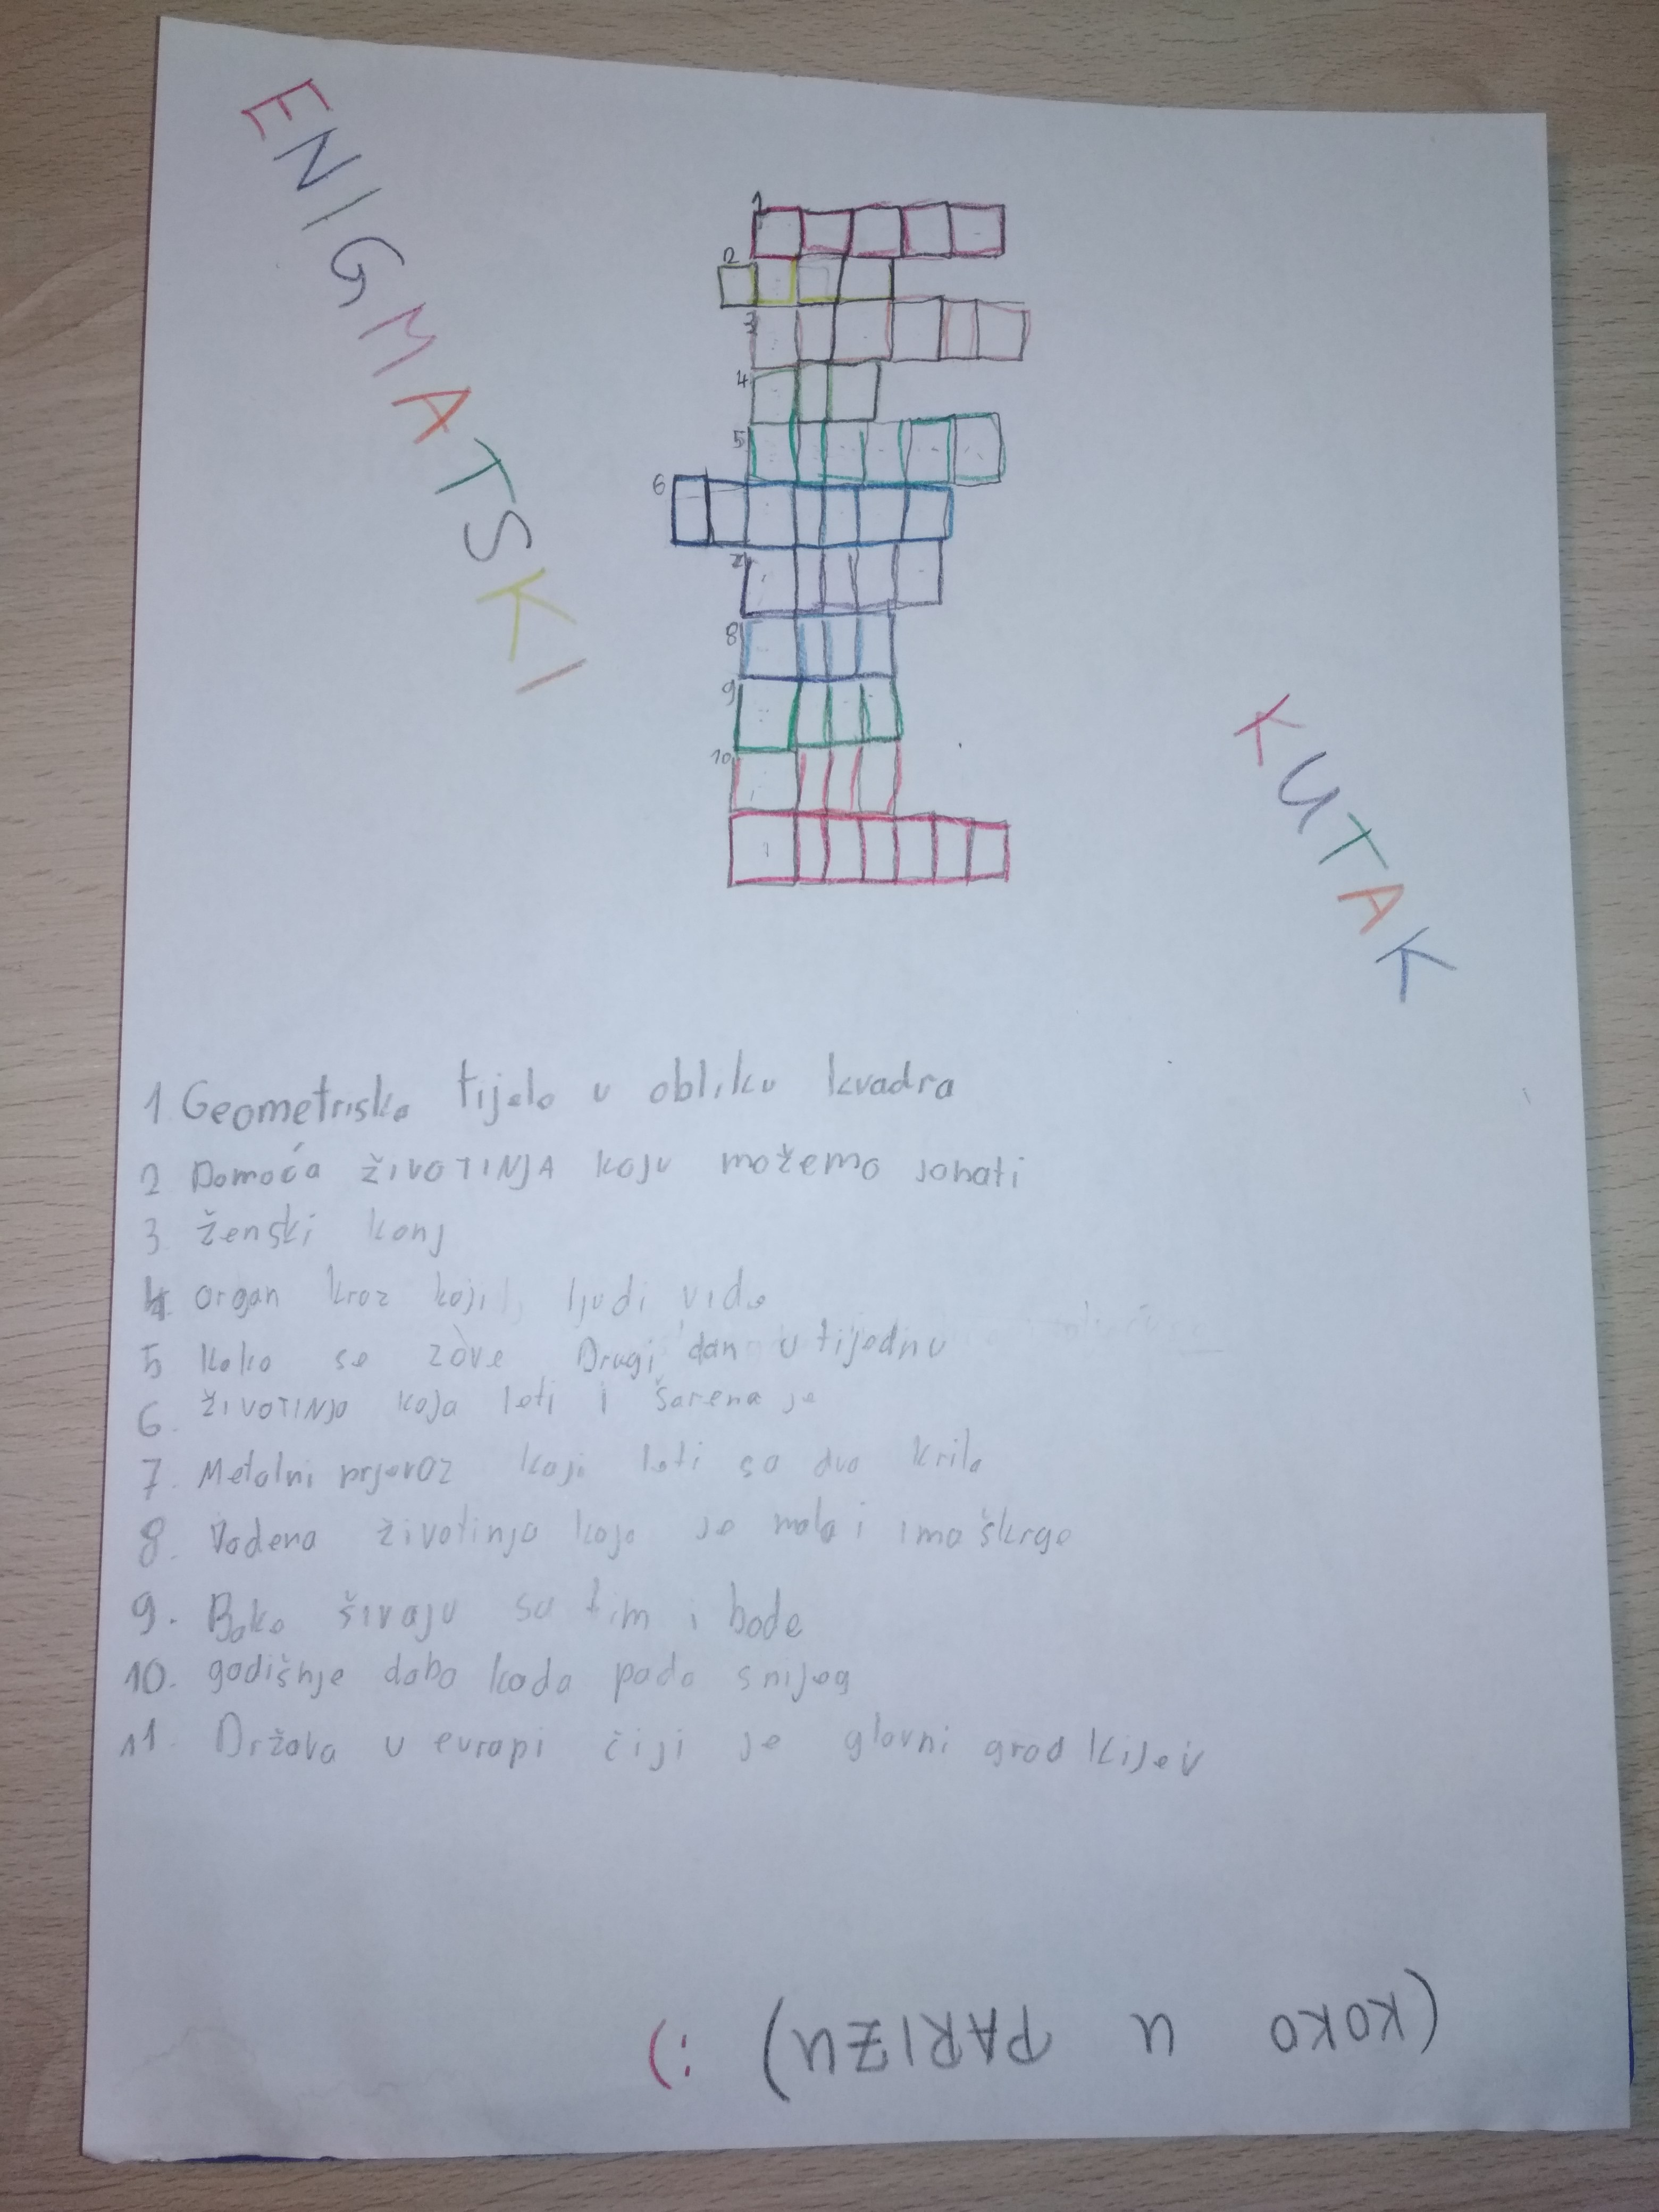 ENIGMATSKI
KUTAK
1
2
3
4
5
6
7
8
9
10
1 Geometrisko tijelo u obliku kvadra
2 Domaća ŽIVOTINJA koju možemo jahati
3 ženski konj
4. organ kroz koji ljudi vide
5 kako se zove Drugi dan u tijednu
6. ŽIVOTINJA koja leti i šarena je
7. Metalni prjevoz koji leti sa dva krila
8. Vodena životinja koja je mala i ima škrge
9. Bake šivaju sa tim i bode
10. godišnje doba kada pada snijeg
11. Država u europi čiji je glavni grad Kijev
(KOKO U PARIZU) :)